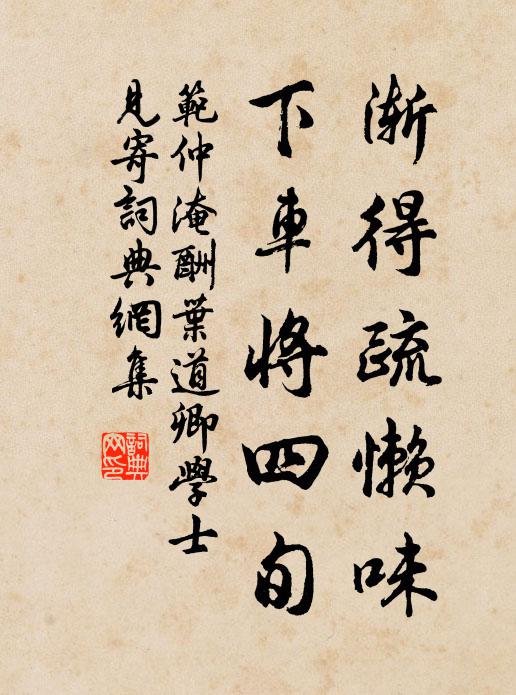 漸得疏懶味
下車將四旬
範仲淹酬葉道卿學士
見寄詞典網集
詞典網印